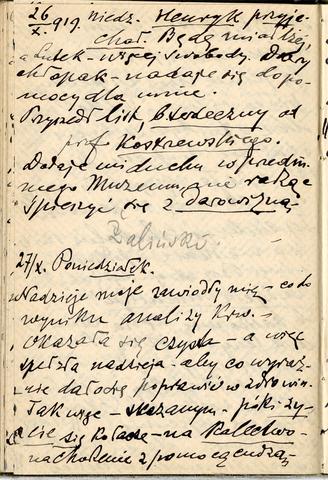 26/X. 919. niedz. Henryk przyje-
chał. Będę miał
a Lutek - więcej swobody. Dobry
chłopak - nadaje się do po-
mocy dla mnie.
Przyszedł list, b. serdeczny od
prof. Kostrzewskiego.
Dodaje mi ducha w
mego Muzeum, radząc
śpieszyć się z darowizną.
Zaliński.
27/X. Poniedziałek.
Nadzieje moje zawiodły mię - co do
wyniku analizy krw. -
Okazała się czysta - a więc
spełzła nadzieja - aby co wyraź-
nie dało się poprawić w zdrowiu.
Tak więc - skazanym - póki ży-
cie się kołacze - na kalectwo -
na chodzenie z pomocą cudzą,